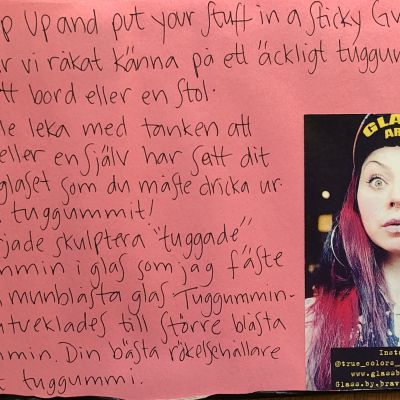 Up and put your stuff in a sticky
vi råkat känna på ett äckligt
bord eller en stol.
leka med tanken att
eller en själv har satt dit
glaset som du måste dricka ur
tuggummit!
skulptera "tuggade"
i glas som jag fäste
munblåsta glas Tuggummin-
till större blåsta
Din bästa rökelsehållare
tuggummi.
GLAS
Insta
@true_colors_
Glass.by.brav